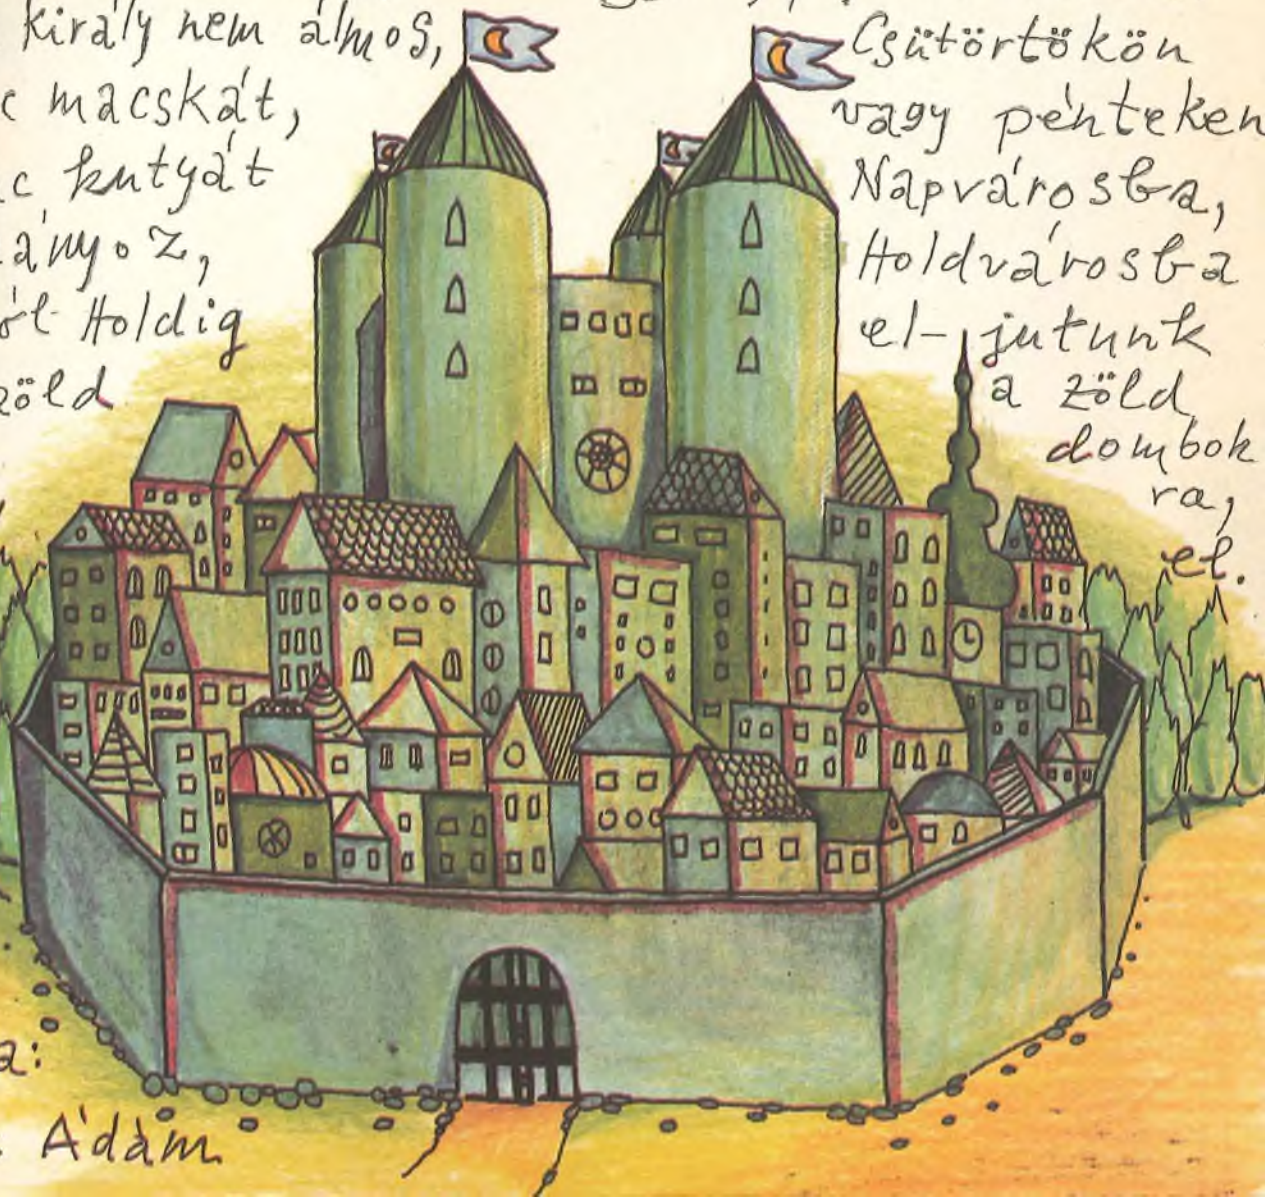 király nem álmos,
macskát,
kutyát
Holdig
zöld
Csütörtökön
vagy pénteken
Napvárosba,
Holdvárosba
el-jutunk
a zöld
dombok
ra,
el.
Ádám